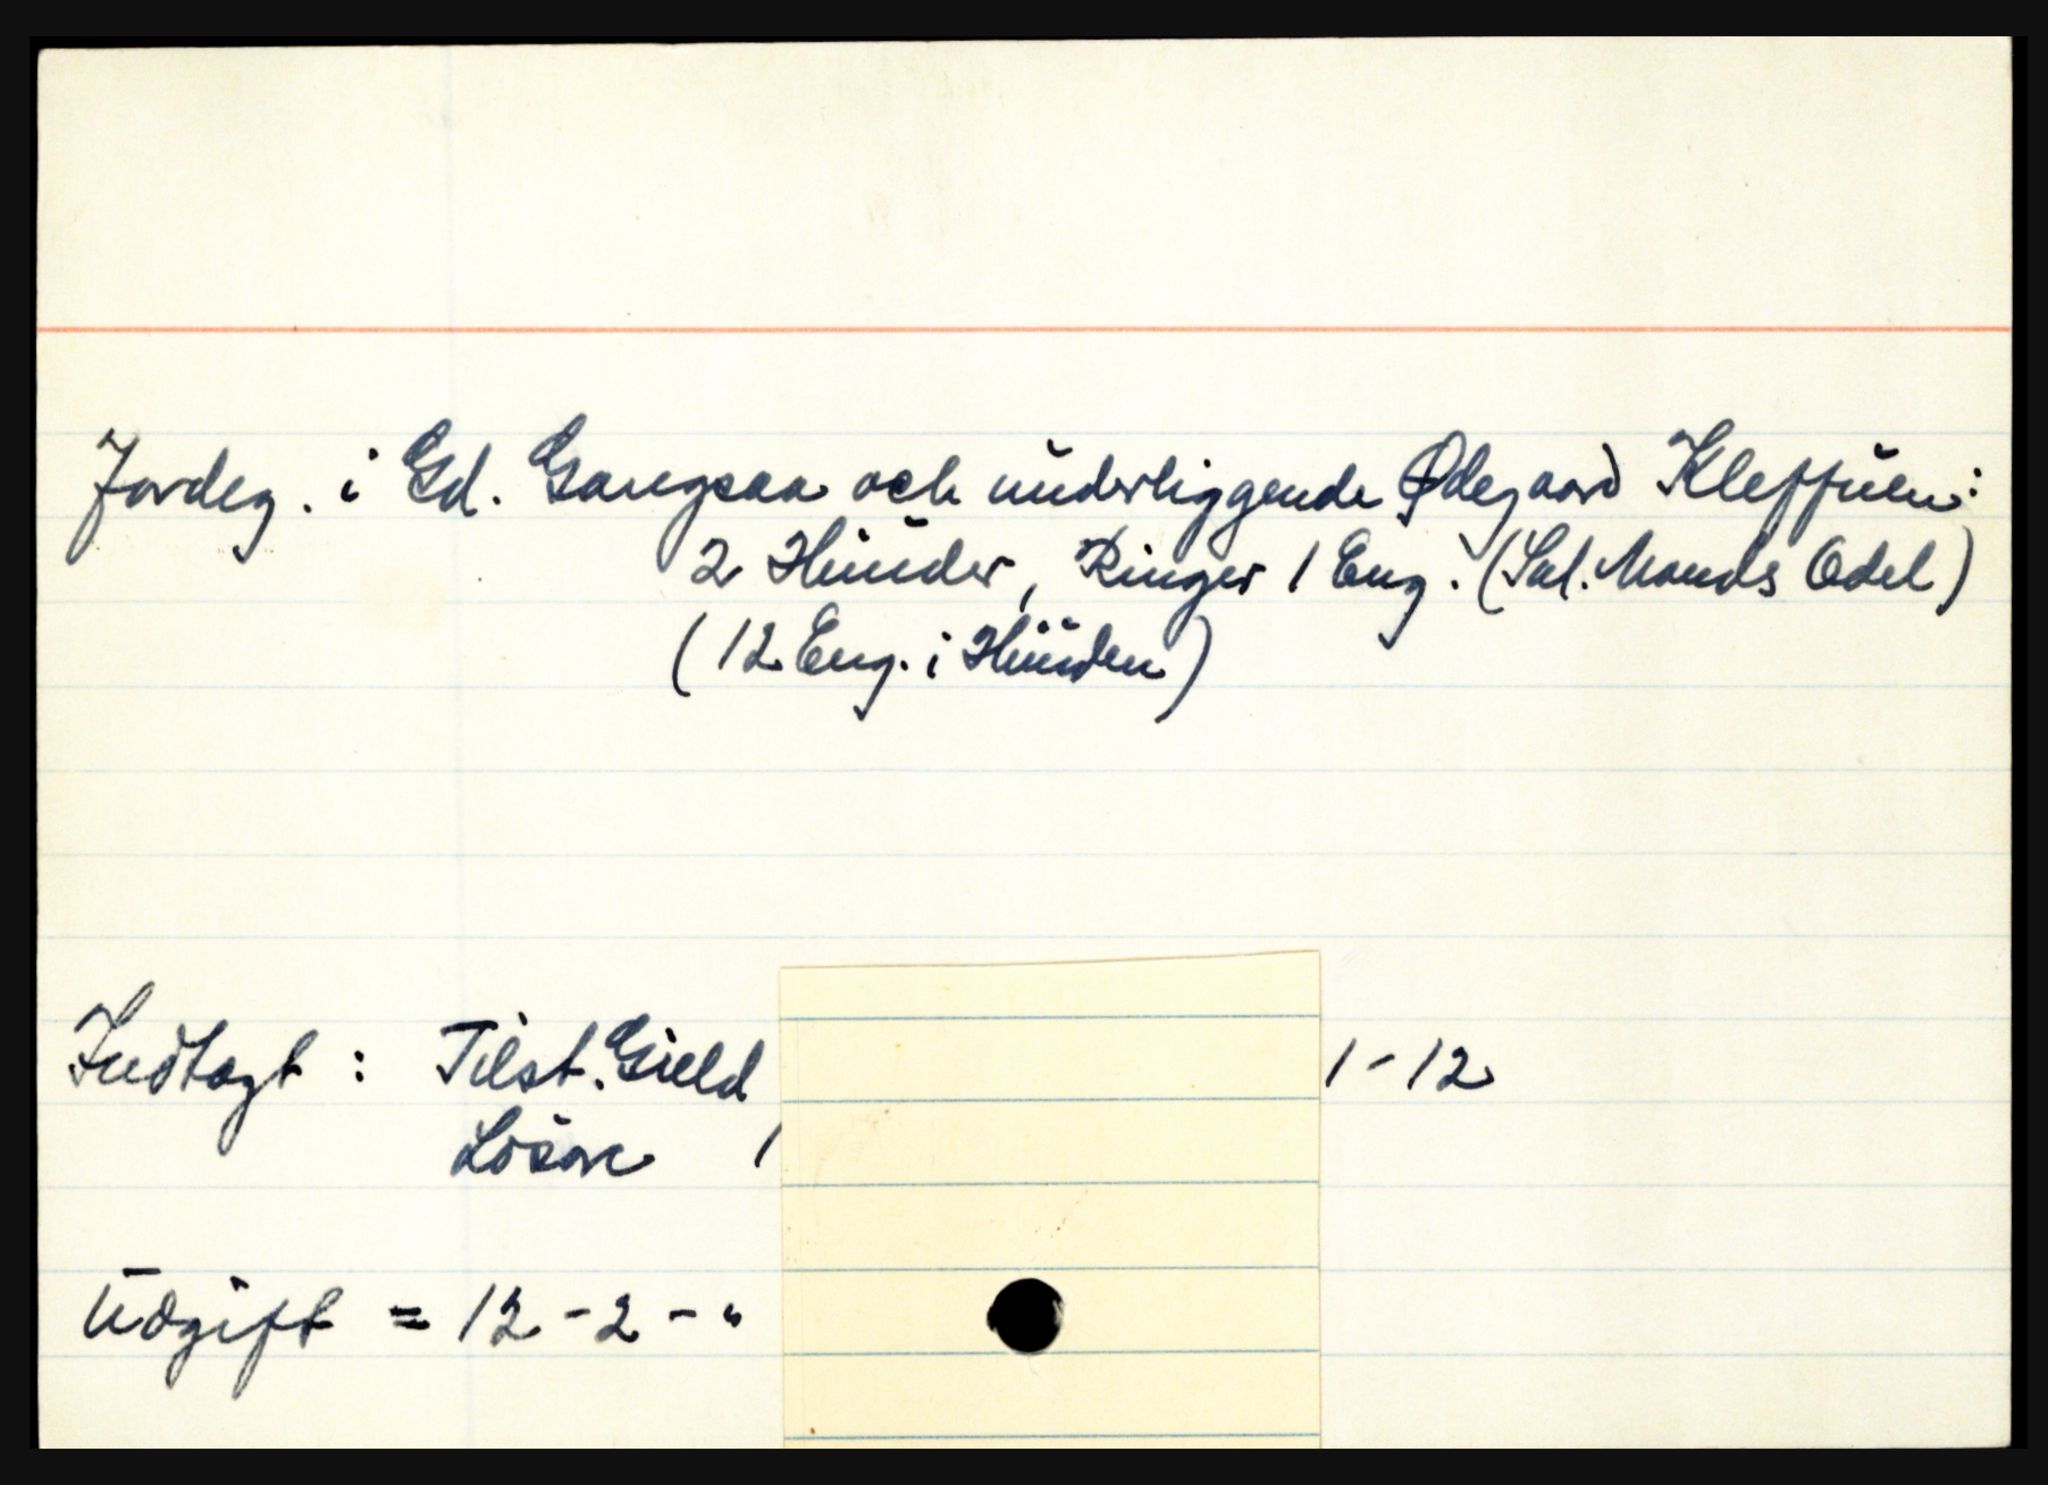 Jordeg. i Gd. Gangsaa och underliggende Ødegaard Kleffuen:
2 Hunder, Ringer 1 Eng. (Sal. Mands Odel)
(12 Eng. i Hunden)
Indtagt : Tilst. Gield, 1-12
Lösöre /
Udgift = 12 - 2 - "